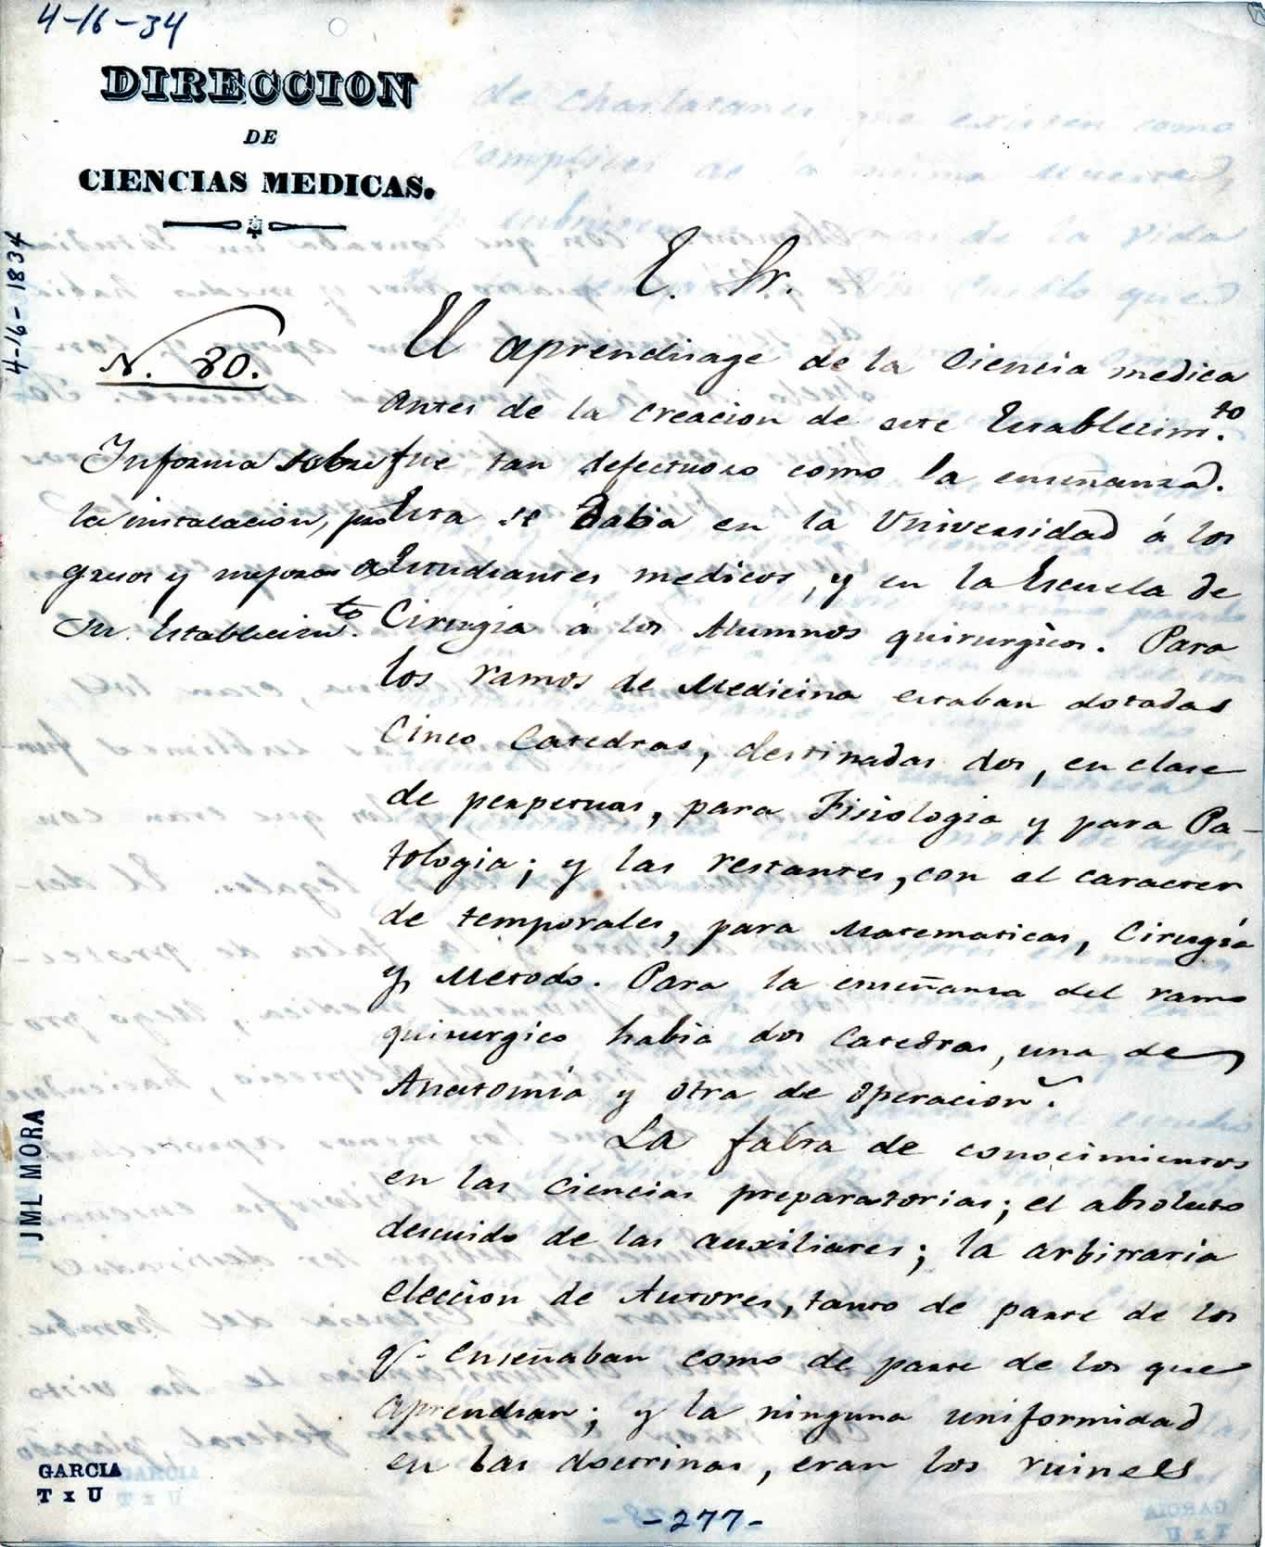 4-16-34
DIRECCION
DE
CIENCIAS MEDICAS.
4-16-1834
E. Sr.
N. 80.
Informa sobre
la instalacion, pro
gresos y mejoras de
su Establecim.to
El aprendisage de la Ciencia medica
antes de la creacion de este Establecim.to
fue tan defectuoso como la enseñanza.
Esta se daba en la Universidad á los
Estudiantes medicos, y en la Escuela de
Cirugia á los Alumnos quirurgicos. Para
los ramos de Medicina estaban dotadas
Cinco Catedras, destinadas dos, en clase
de perpetuas, para Fisiologia y para Pa-
tologia; y las restantes, con el caracter
de temporales, para Matematicas, Cirugía
y Metodo. Para la enseñanza del ramo
quirurgico habia dos Catedras, una de
Anatomía y otra de Operacion.s
La falta de conocimientos
en las ciencias preparatorias; el absoluto
descuido de las auxiliares; la arbitraria
eleccion de Autores, tanto de parte de los
q.e enseñaban como de parte de los que
aprendian; y la ninguna uniformidad
en las doctrinas, eran los ruines
JML MORA
GARCIA
T x U
-277-